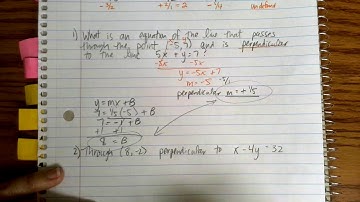 - 3/2 + 2/1 = 2 - 1/4 undefined
1) What is an equation of the line that passes
through then point (-5, 7) and is perpendicular
to the line 5x + y = 7?
-5x -5x
y = -5x + 7
m = -5
perpendicular m = + 1/5
y = mx + B
7 = 1/5 (-5) + B
7 = -1 + B
+1 +1
8 = B
2) through (8, -2) perpendicular to x - 4y = 32